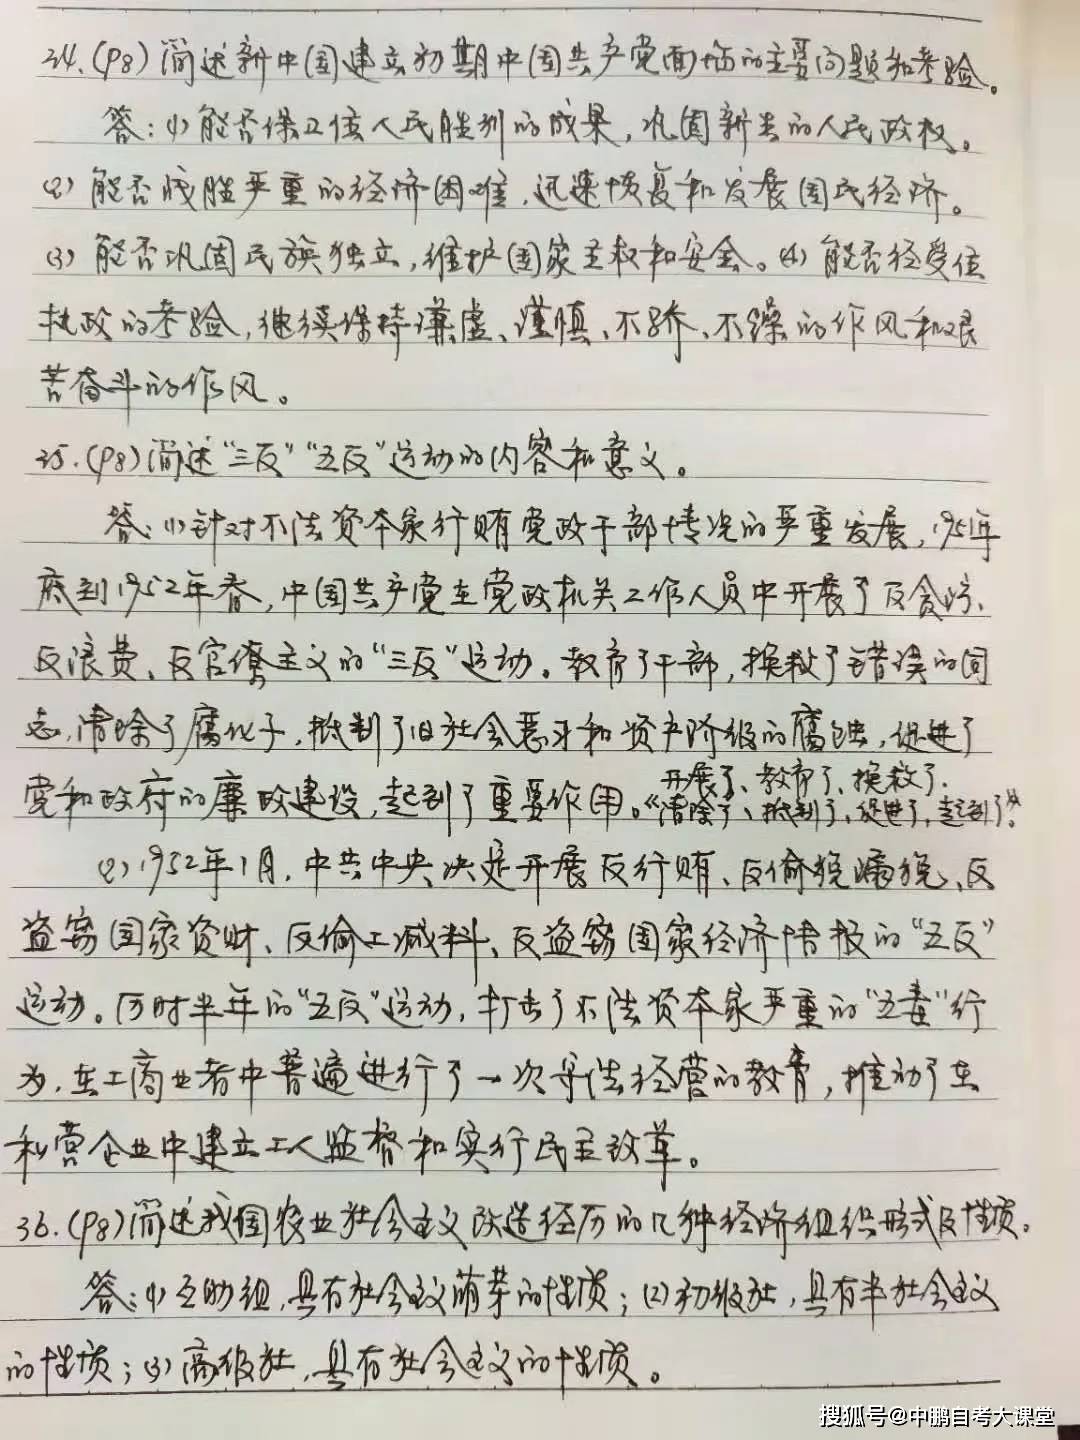 34.(P8)简述新中国建立初期中国共产党面临的主要问题和考验。
答:(1)能否保卫住人民胜利的成果,巩固新生的人民政权。
(2)能否战胜严重的经济困难,迅速恢复和发展国民经济。
(3)能否巩固民族独立,维护国家主权和安全。(4)能否经受住
执政的考验,继续保持谦虚、谨慎、不骄、不躁的作风和艰
苦奋斗的作风。
35.(P8)简述“三反”“五反”运动的内容和意义。
答:(1)针对不法资本家行贿党政干部情况的严重发展,1951年
底到1952年春,中国共产党在党政机关工作人员中开展了反贪污、
反浪费、反官僚主义的“三反”运动。教育了干部,挽救了错误的同
志,清除了腐化子,抵制了旧社会恶习和资产阶级的腐蚀,促进了
开展了、教育了、挽救了.
党和政府的廉政建设,起到了重要作用。“清除了、抵制了、促进了、起到了”。
(2)1952年1月,中共中央决定开展反行贿、反偷税漏税、反
盗窃国家资财、反偷工减料、反盗窃国家经济情报的“五反”
运动。历时半年的“五反”运动,打击了不法资本家严重的“五毒”行
为,在工商业者中普遍进行了一次守法经营的教育,推动了在
私营企业中建立工人监督和实行民主改革。
36.(P8)简述我国农业社会主义改造经历的几种经济组织形式及性质。
答:(1)互助组,具有社会主义萌芽的性质;(2)初级社,具有半社会主义
的性质;(3)高级社,具有社会主义的性质。
搜狐号@中鹏自考大课堂